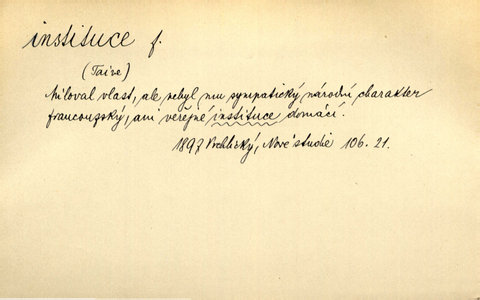 instituce f.
(Taine)
Miloval vlast, ale nebyl mu sympatický národní charakter
francouzský, ani veřejné instituce domácí.
1897 Vrchlický, Nové studie 106. 21.